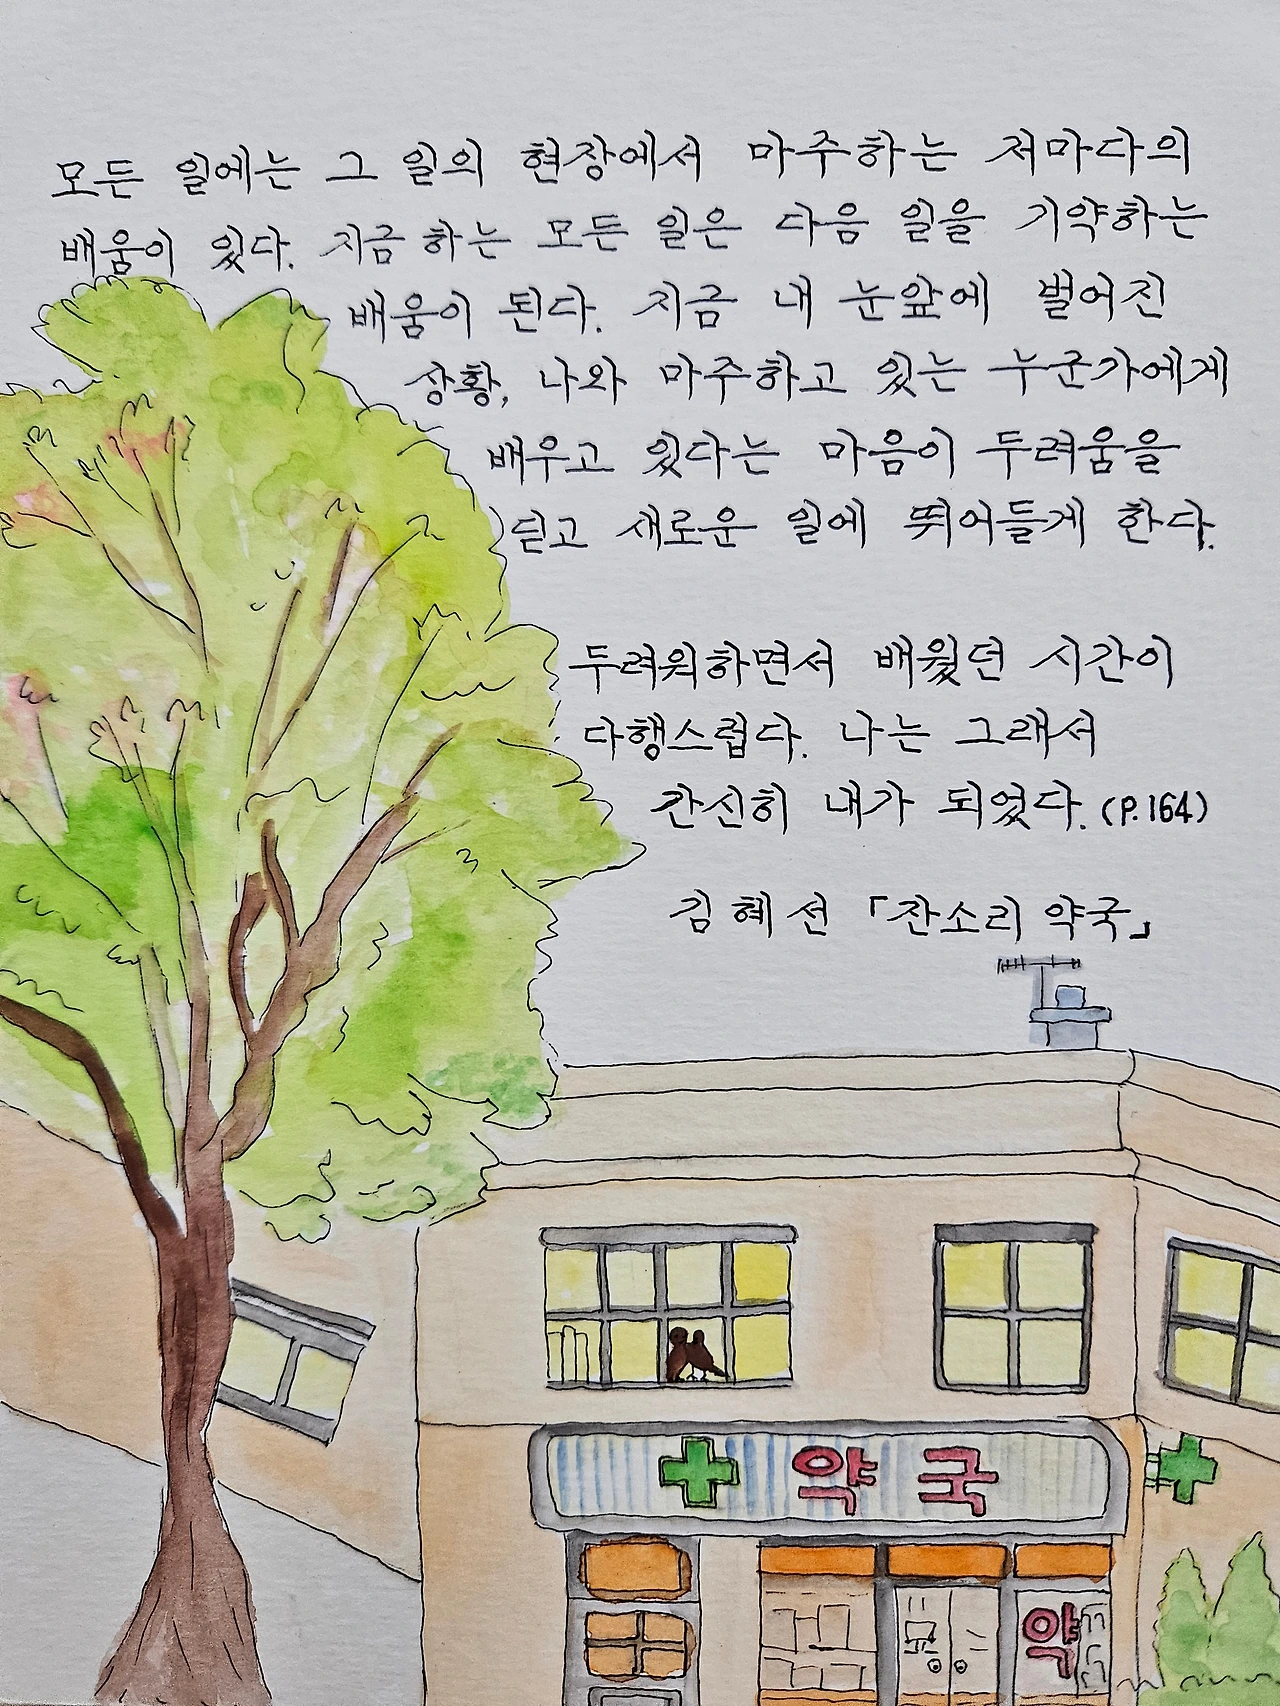 모든 일에는 그 일의 현장에서 마주하는 저마다의
배움이 있다. 지금 하는 모든 일은 다음 일을 기약하는
배움이 된다. 지금 내 눈앞에 벌어진
상황, 나와 마주하고 있는 누군가에게
배우고 있다는 마음이 두려움을
딛고 새로운 일에 뛰어들게 한다.
두려워하면서 배웠던 시간이
다행스럽다. 나는 그래서
간신히 내가 되었다. (P.164)
김혜선 「잔소리 약국」
약국
약